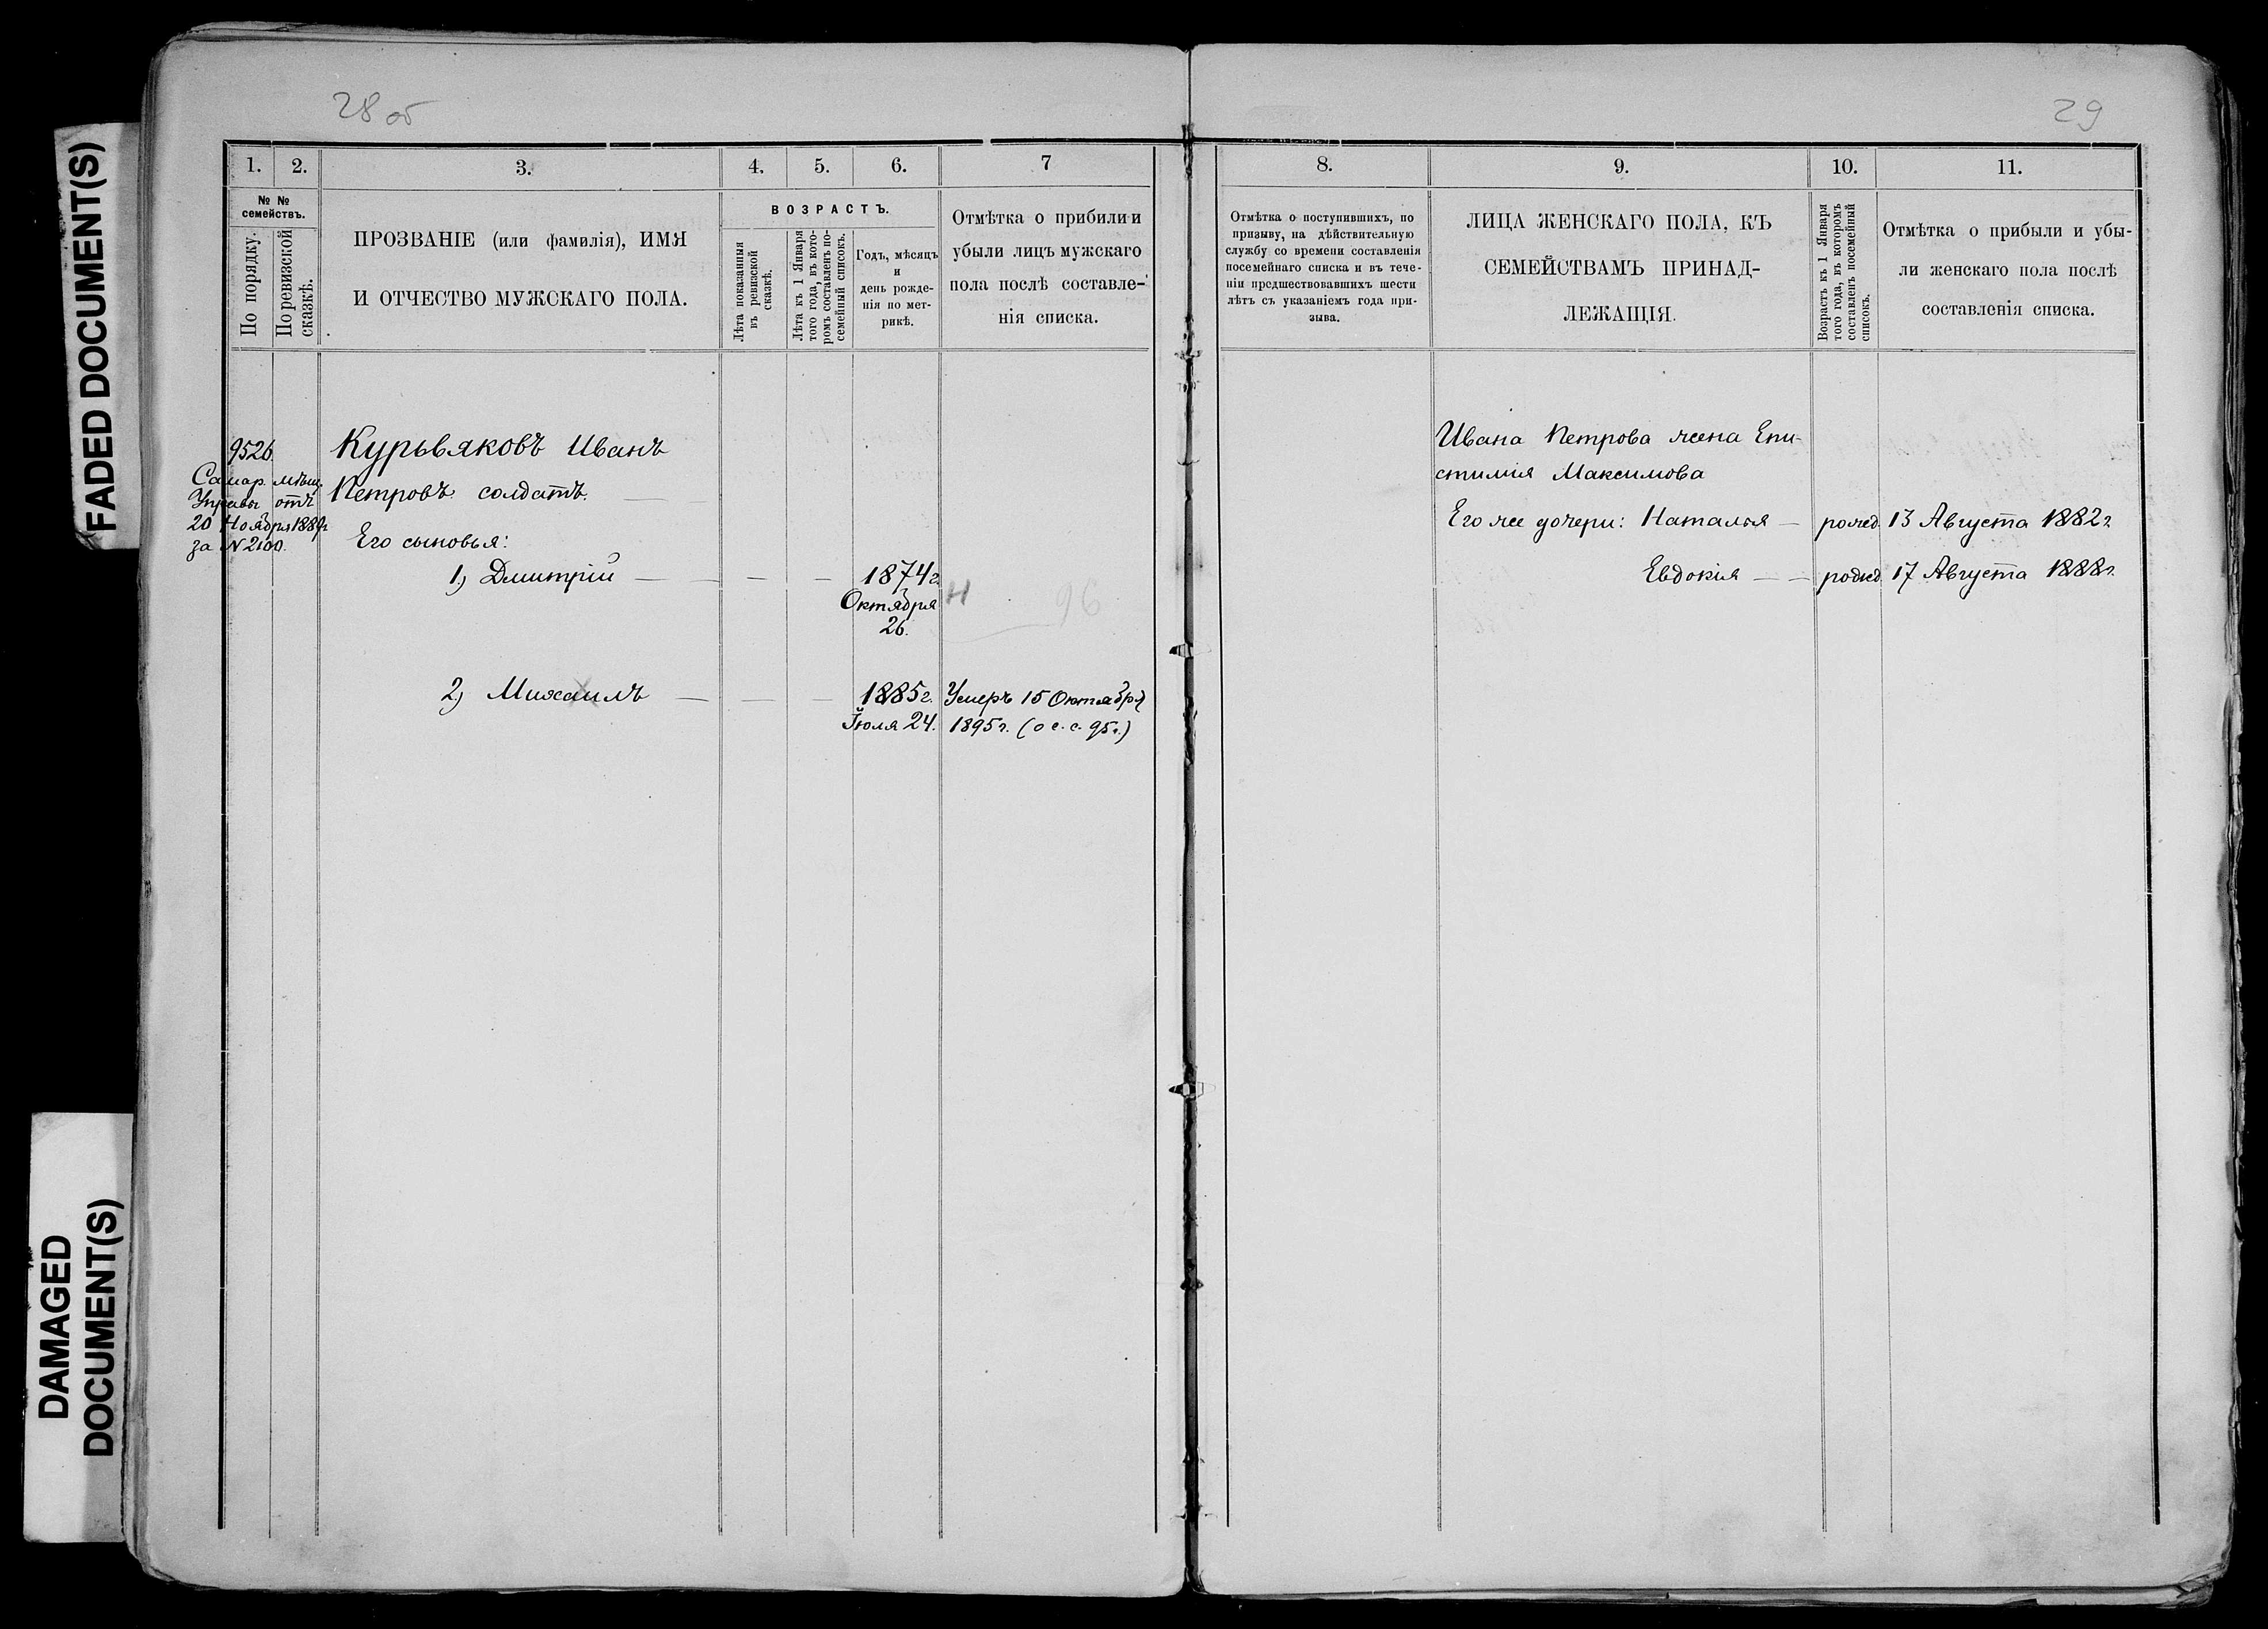 FADED DOCUMENT(S)
DAMAGED
DOCUMENT(S)
28 об
1.
2.
3.
4.
5.
6.
7
№ №
семействъ.
По порядку.
По ревизской
сказкѣ.
ПРОЗВАНІЕ (или фамилія), ИМЯ
И ОТЧЕСТВО МУЖСКАГО ПОЛА.
ВОЗРАСТЪ.
Лѣта показанныя
въ ревизской
сказкѣ.
Лѣта къ 1 Января
того года, въ кото-
ромъ составленъ по-
семейный списокъ.
Годъ, мѣсяцъ
и
день рожде-
нія по мет-
рикѣ.
Отмѣтка о прибили и
убыли лицъ мужскаго
пола послѣ составле-
нія списка.
9526.
Самар. мѣщ.
Управы отъ
20 Ноября 1889г
за N 2100.
Курьвяковъ Иванъ
Петровъ солдатъ.
Его сыновья:
1) Дмитрій — — — — 1874г.
Октября
26.
Н 96
2) Михаилъ — — — 1885г. Умеръ 15 Октября
Іюля 24. 1895г. (о с. с. 95г.)
29
8.
9.
10.
11.
Отмѣтка о поступившихъ, по
призыву, на дѣйствительную
службу со времени составленія
посемейнаго списка и въ тече-
ніи предшествовавшихъ шести
лѣтъ съ указаніемъ года при-
зыва.
ЛИЦА ЖЕНСКАГО ПОЛА, КЪ
СЕМЕЙСТВАМЪ ПРИНАД-
ЛЕЖАЩІЯ.
Возрастъ къ 1 Января
того года, въ которомъ
составленъ посемейный
списокъ.
Отмѣтка о прибыли и убы-
ли женскаго пола послѣ
составленія списка.
Ивана Петрова жена Епи-
стимия Максимова
Его же дочери: Наталья — рожд. 13 Августа 1882г.
Евдокія — — рожд. 17 Августа 1888г.